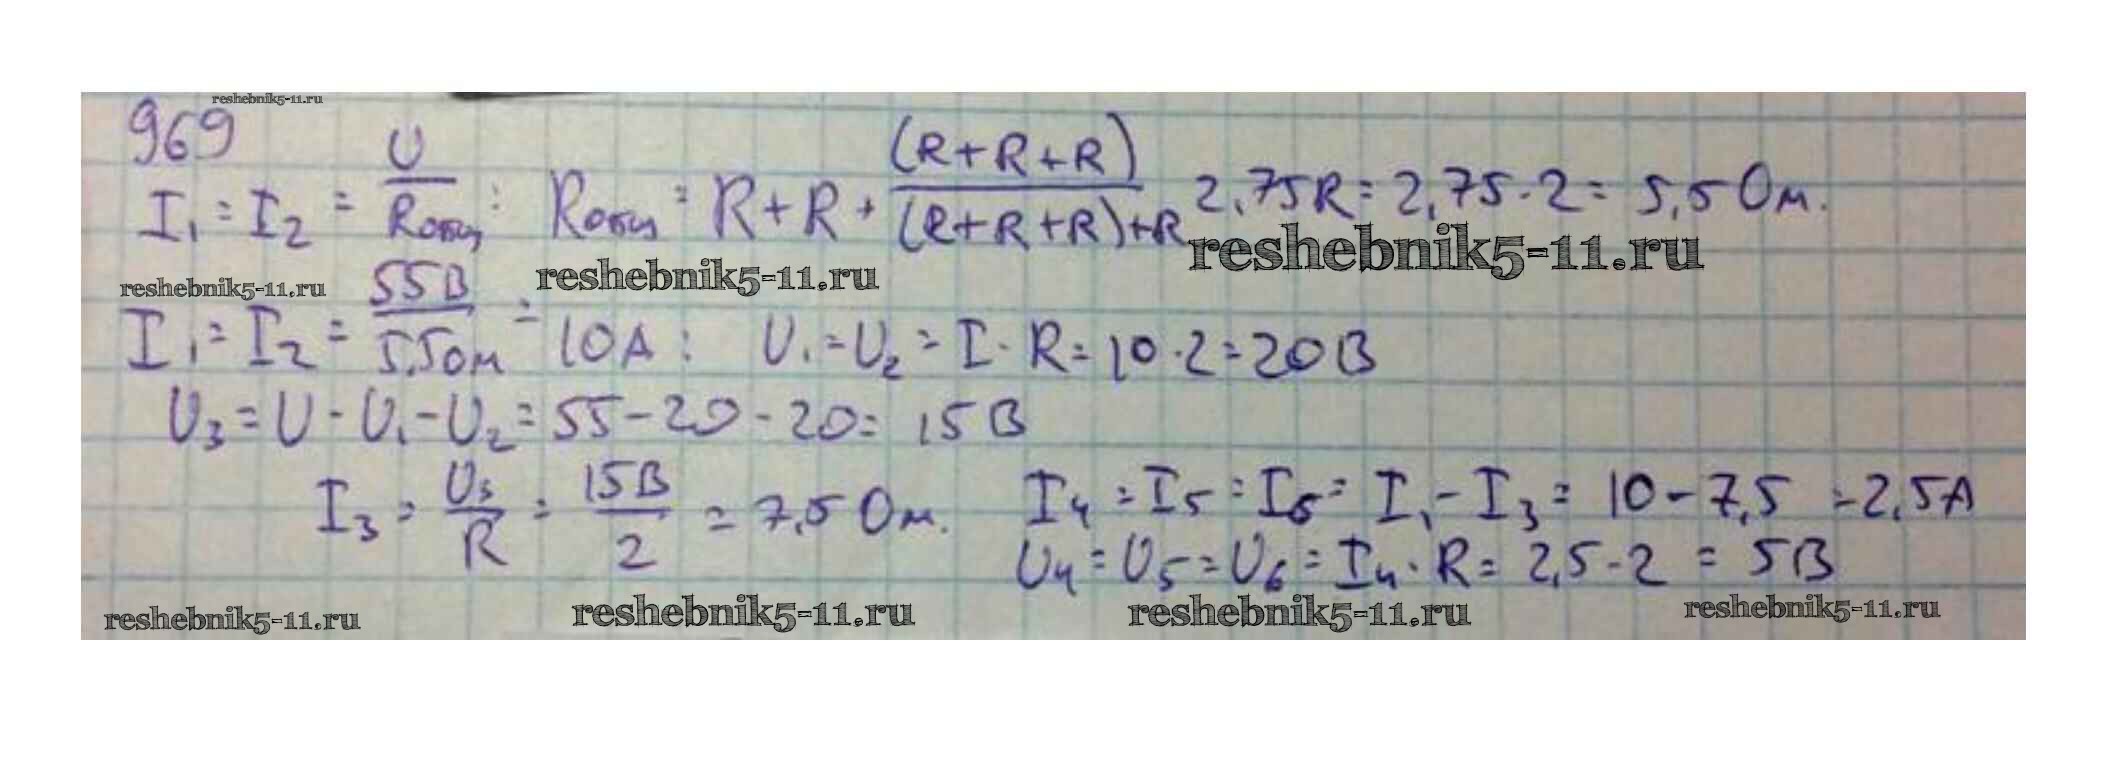 reshebnik5-11.ru
969
I₁ = I₂ = U/Rобщ; Rобщ = R + R + (R+R+R)/((R+R+R)+R) 2,75R = 2,75·2 = 5,5 Ом.
reshebnik5-11.ru
reshebnik5-11.ru reshebnik5-11.ru
I₁ = I₂ = 55В/5,5Ом = 10А; U₁ = U₂ = I·R = 10·2 = 20В
U₃ = U - U₁ - U₂ = 55 - 20 - 20 = 15В
I₃ = U₃/R = 15В/2 = 7,5 Ом. I₄ = I₅ = I₆ = I₁ - I₃ = 10 - 7,5 = 2,5А
U₄ = U₅ = U₆ = I₄·R = 2,5·2 = 5В
reshebnik5-11.ru reshebnik5-11.ru reshebnik5-11.ru reshebnik5-11.ru